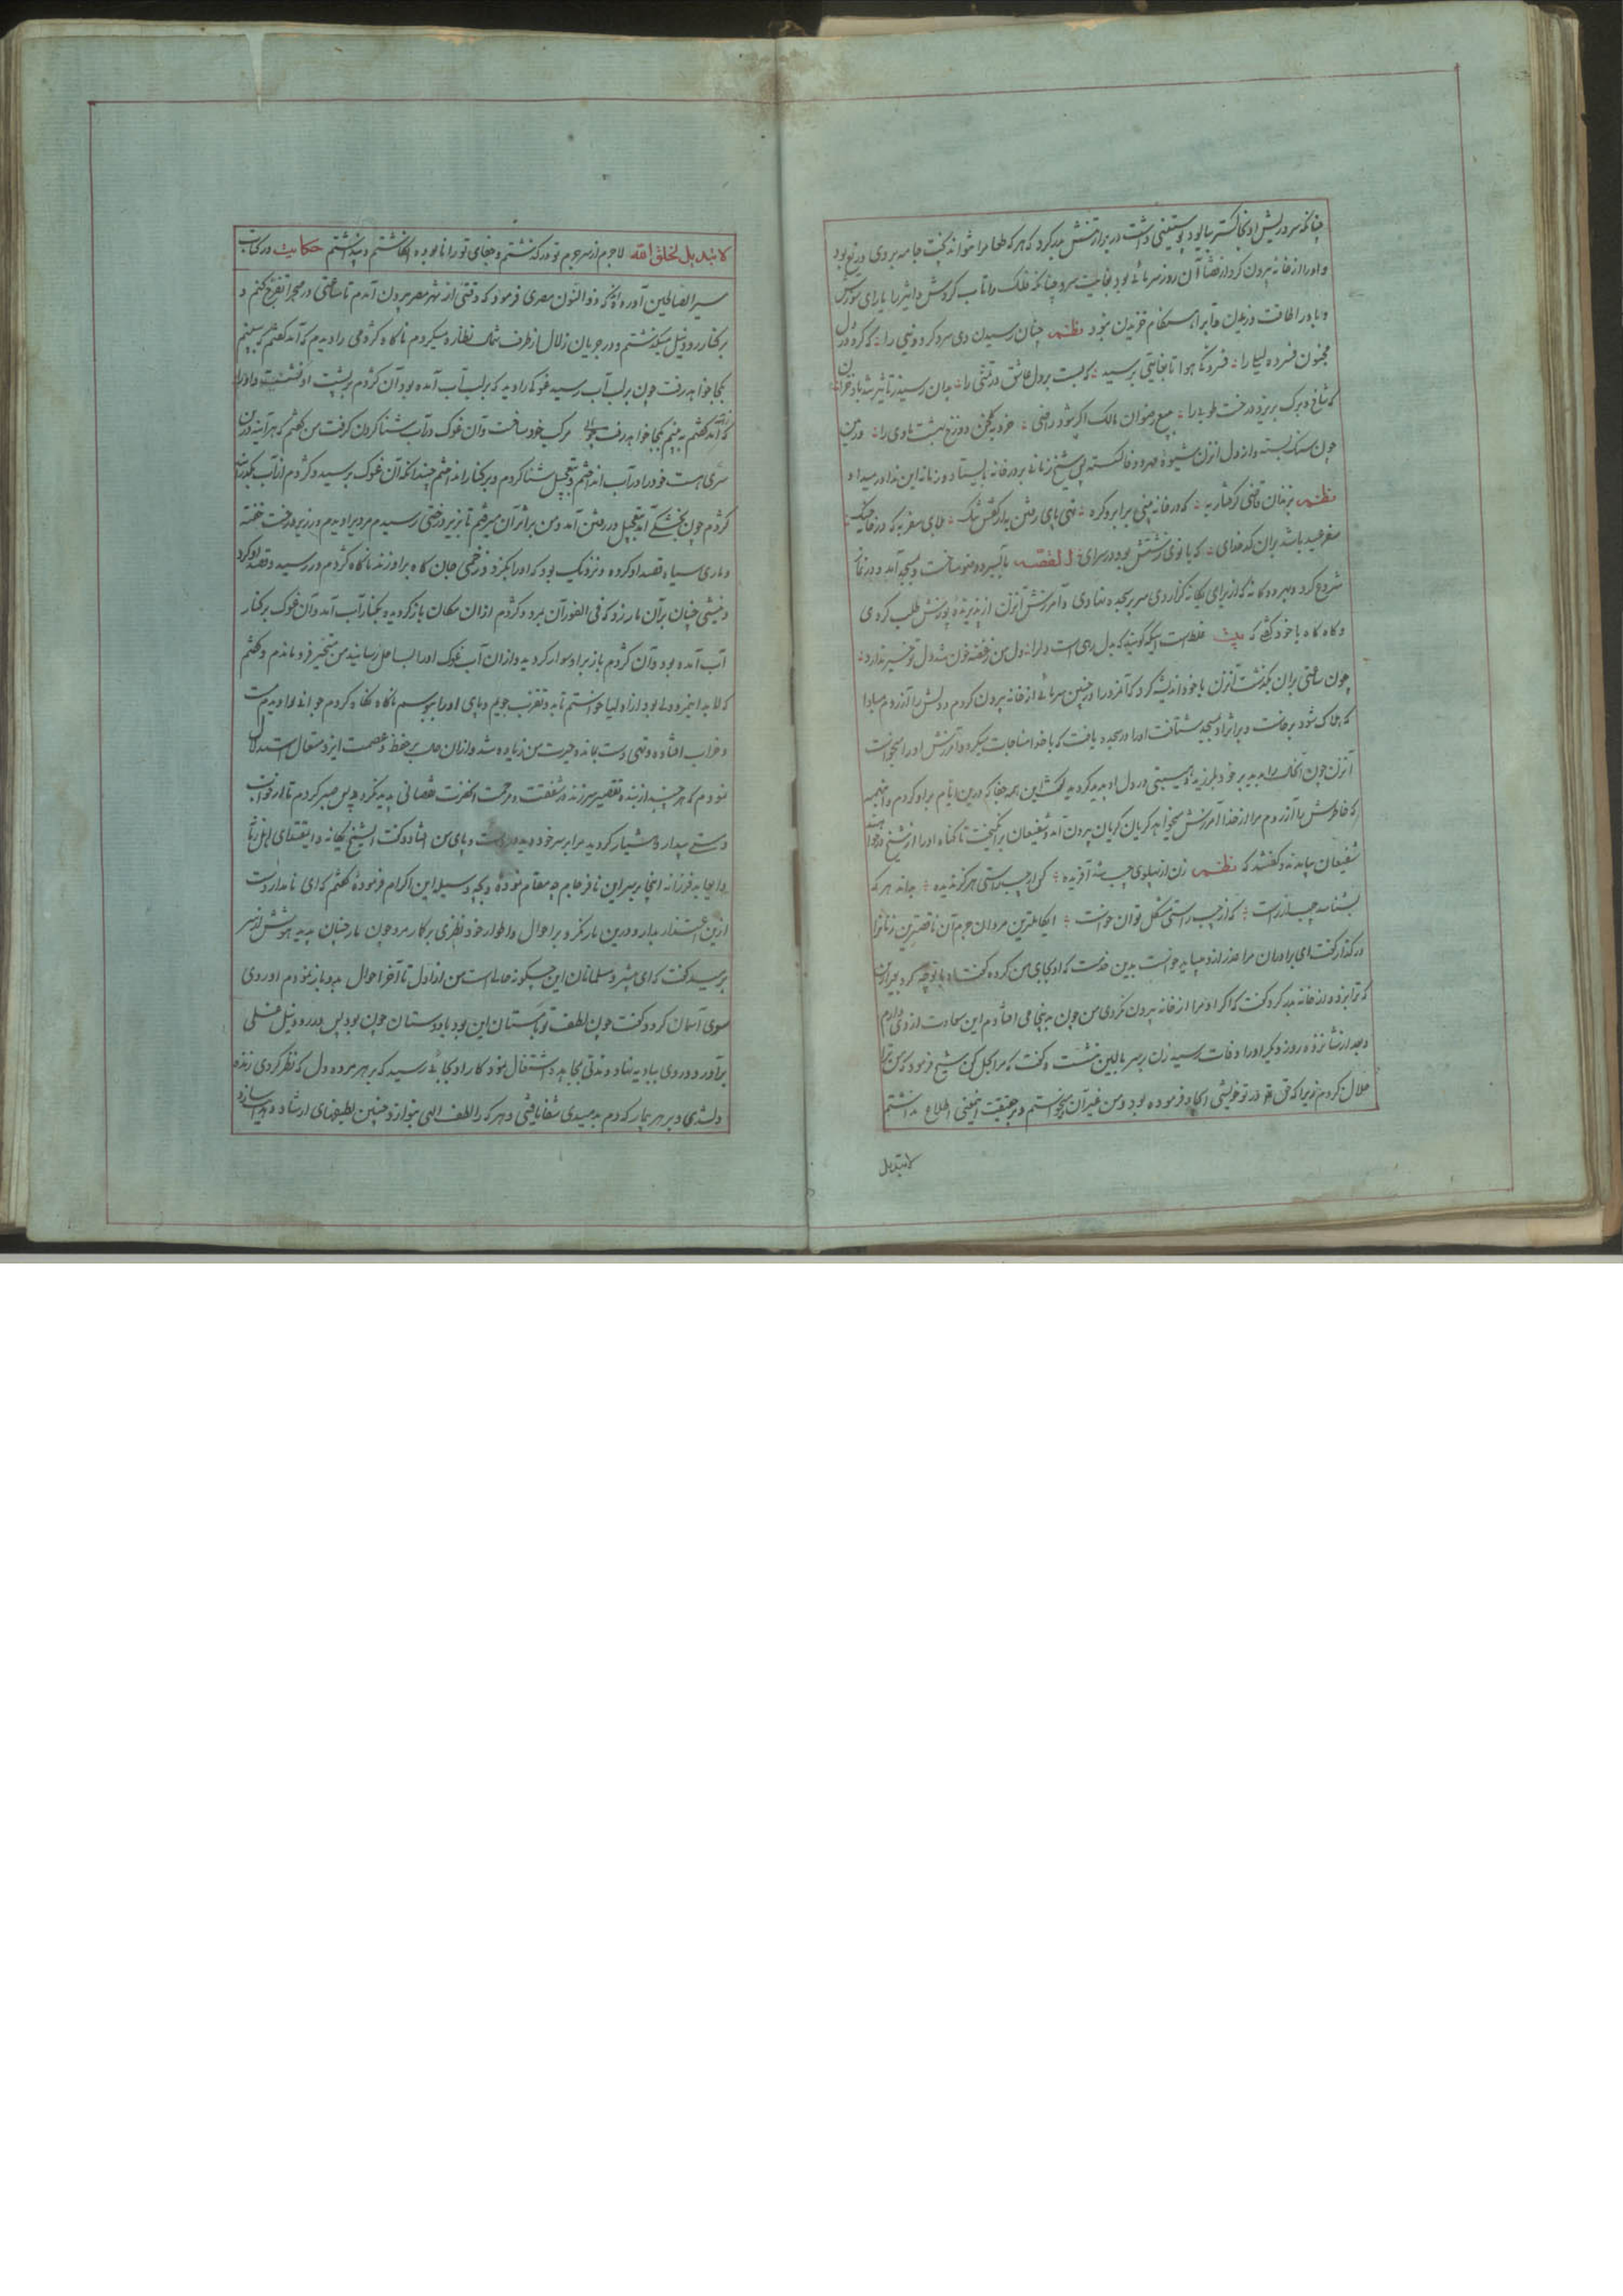 چنانکه سر و ریش او بخاکستر بیالود و پوستینی داشت در بر از تنش بدر کرد که هرکه طعام را نتواند پخت جامه بر وی دریغ بود
و او را از خانه بیرون کرد از قضا آن روز سرمائی بود بغایت سرد چنانکه فلک را تاب گردش و اثیر را یارای سوزش
و باد را طاقت وزیدن و آب را استحکام خزیدن نبود نظم چنان رسیدن دی سرد کرد دنیی را که کرد در دل
مجنون فسرده لیلی را فسردگی هوا تا بغایتی برسید که بست بر دل عاشق در تمنی را بدان رسید ز تأثیر تندباد خزان
که شاخ و برگ بریزد درخت طوبی را بیع رضوان مالک اگر شود راضی خرد بگلخن دوزخ بهشت ماوی را و در
چون سنک بسته و از دل آنزن شیوه مهر و وفا گسسته پس شیخ زمانی بر در خانه بایستاد و زمانه این ندا در میداد
نظم بزندان قاضی گرفتار به که در خانه بینی بر ابرو گره تهی پای رفتن به از کفش تنک بلای سفر به که در خانه جنک
سفر عید باشد بران کدخدای که بانوی زشتش بود در سرای القصه بآب سرد وضو ساخت و بمسجد آمد و در نماز
شروع کرد و بهر دوگانه که از برای یگانه گزاردی سر بسجده نهادی و آمرزش آنزن از ایزد بپوزش طلب کردی
و گاه گاه با خود گفتی که بیت غلط است اینکه گویند که بدل رهی است دل را دل من ز غصه خون شد دل تو خبر ندارد
چون ساعتی بران بگذشت آنزن با خود اندیشه کرد که آنمرد را در چنین سرمائی از خانه بیرون کردم و دلش را آزردم مبادا
که هلاک شود برخاست و بر اثر او بمسجد شتافت او را در سجده یافت که با خدا مناجات میکرد و آمرزش او را میخواست
آنزن چون آنحال را بدید بر خود بلرزید و هیبتی در دل او پدید گردید گفت این همه جفا که درین ایام بر او کردم و اینهمه
که خاطرش را آزردم مرا از خدا آمرزش میخواهد گریان گریان بیرون آمد و شفیعان برانگیخت تا گناه او را از شیخ درخواهند
شفیعان بیامدند و گفتند که نظم زن از پهلوی چپ شد آفریده کس از چپ راستی هرگز ندیده بداند هر که
بشناسد چپ از راست که از چپ راستی مشکل توان خواست ای کاملترین مردان جرم آن ناقصترین زنانرا
درگذار گفت ای برادران مرا عذر از و میباید خواست بدین خدمت که او بجای من کرده گفتند او با تو چه کرد بجز این
که ترا بزد و از خانه بدر کرد گفت که اگر او مرا از خانه بیرون نکردی من چون بدینجا می افتادم این سعادت از وی دارم
و بعد از شانزده روز دیگر او را وفات رسید زن بر سر بالین نشست و گفت که مرا بحل کن شیخ فرمود که من ترا
حلال کردم زیرا که حق در تو خویشی ایجاد فرموده بود و من غیر آن میخواستم و بر حقیقت اینمعنی اطلاع نداشتم
لا تبدیل
لا تبدیل لخلق الله لاجرم از سر جرم تو درگذشتم و جفای تو را نابوده انگاشتم و پنداشتم حکایت در کتاب
سیر الصالحین آورده اند که ذوالنون مصری فرمود که وقتی از شهر مصر بیرون آمدم تا ساعتی در صحرا تفرج کنم و
بر کنار رود نیل میگذشتم و در جریان آب زلال از طرف شمال نظاره میکردم ناگاه کژدمی را دیدم که آمد گفتم که ببینم
بکجا خواهد رفت چون بر لب آب رسید غوکی را دید که بر لب آب آمده بود آن کژدم بر پشت او نشست و او را
مرکب خود ساخت و آن غوک در آب شنا کردن گرفت من گفتم که هرآینه درین
سری هست خود را در آب انداختم و بتعجیل شنا کردم و بر کنار انداختم چندانکه آن غوک برسید و کژدم از آب بگذشت
کژدم چون بخشکی آمد بتعجیل در رفتن آمد و من بر اثر آن میرفتم تا بزیر درختی رسیدم مردی را دیدم در زیر درخت خفته
و ماری سیاه قصد او کرده و نزدیک بود که او را بگزد و زخمی جان کاه بر او زند ناگاه کژدم در رسید و قصد او کرد
و نیشی چنان بر آن مار زد که فی الفور آن بمرد و کژدم ازان مکان بازگردیده بکنار آب آمد و آن غوک بر کنار
آب آمده بود و آن کژدم باز بر او سوار گردید و ازان آب غوک او را بساحل رسانید من متحیر فرو ماندم و گفتم
که لابد اینمرد ولی بود از اولیا خواستم تا بدو تقرب جویم و پای او را ببوسم ناگاه نگاه کردم جوانی را دیدم مست
و خراب افتاده و تهی دست بمانده حیرت من زیاده شد و ازان حال بر حفظ و عصمت ایزد متعال استدلال
نمودم که هرچند از بنده تقصیر سرزند در شفقت و مرحمت آنحضرت نقصانی پدید نگردد پس صبر کردم تا از خواب
مستی بیدار و هشیار گردید مرا بر سر خود دید در دست و پای من افتاد و گفت ای شیخ یگانه و ای مقتدای اهل زمانه
و ای عابد فرزانه اینجا بر سر این نافرجام چه مقام نموده و بچه وسیله این اکرام فرموده گفتم که ای نامدار دست
ازین اعتذار بدار و درین مار نگر و بر احوال و اطوار خود نظری برگمار مرد چون مار چنان بدید هوشش از سر
پرسید گفت که ای بشر و مسلمانان این چگونه حال است من از اول تا آخر احوال بدو باز نمودم او روی
سوی آسمان کرد و گفت چون لطف تو با مستان این بود با دوستان چون بود پس در رود نیل غسلی
برآورد و روی ببادیه نهاد و مدتی بمجاهده اشتغال نمود کار او بجائی رسید که بر هر مرده دل که نظر کردی زنده
دل شدی و بر هر بیمار که دم بدمیدی شفا یافتی و هر که را لطف الهی بنوازد چنین لطیفهای ارشاد و هدیه سازد